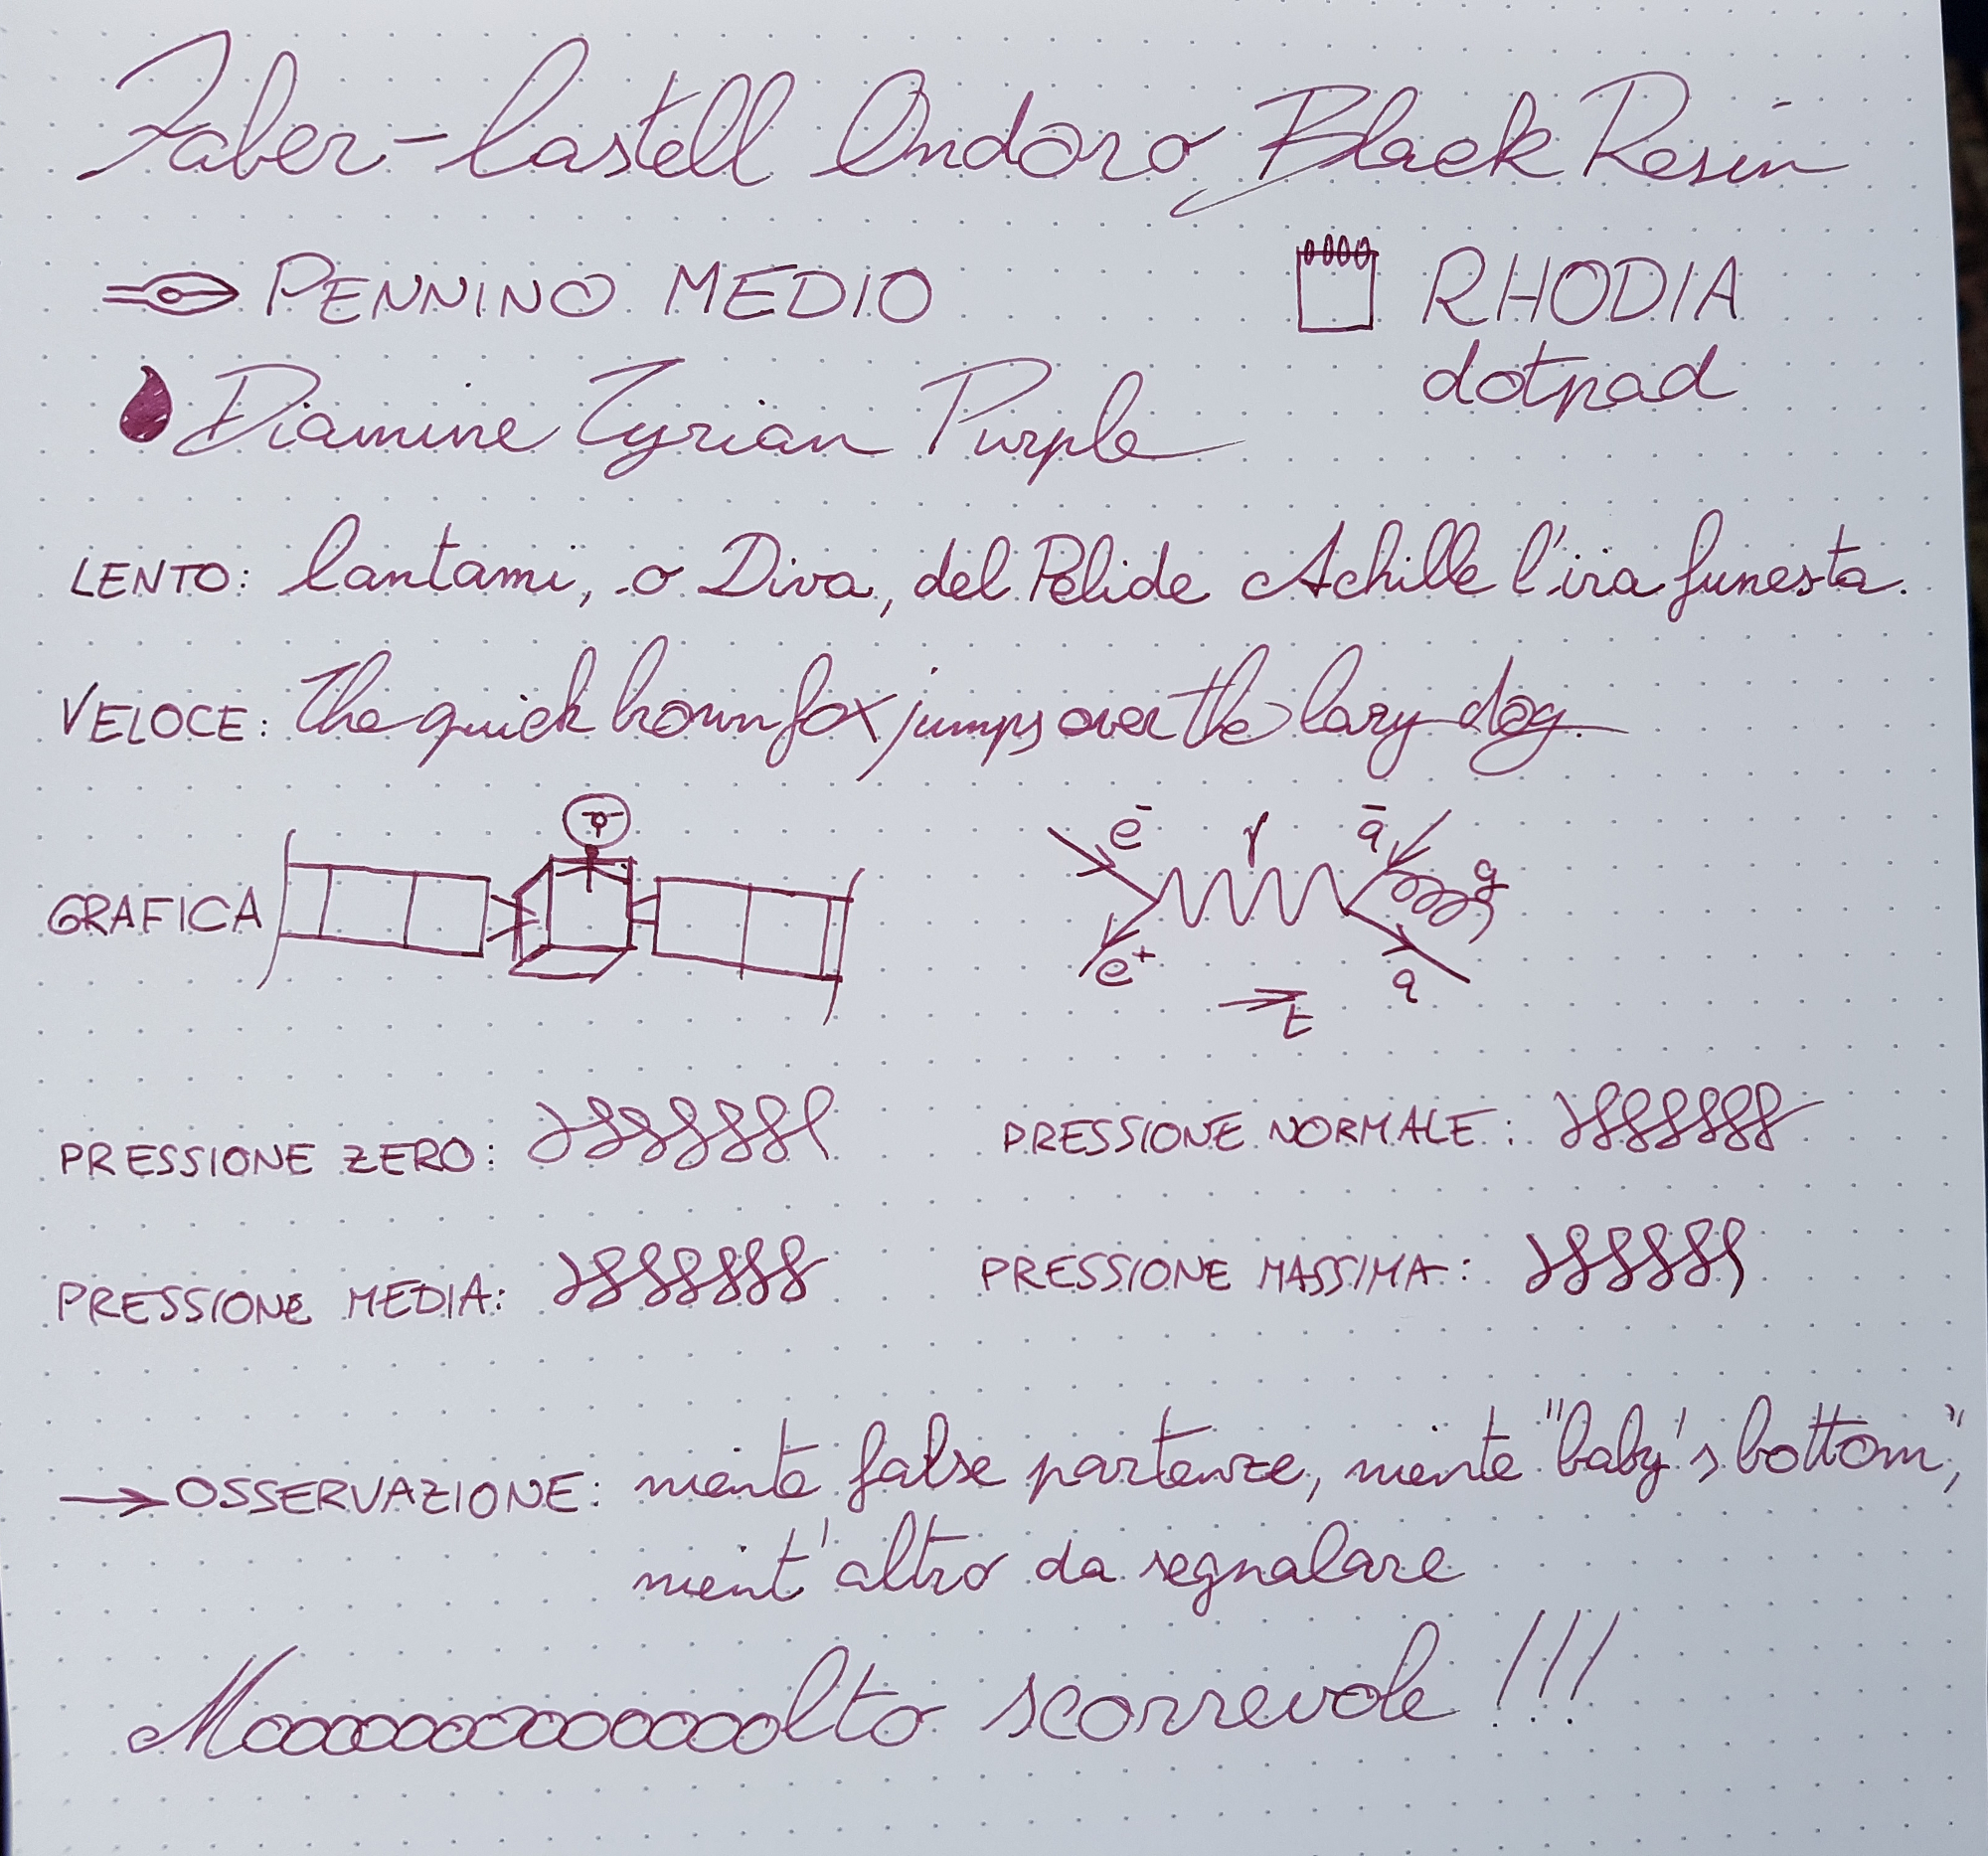 Faber-Castell Ondoro Black Resin
PENNINO MEDIO
RHODIA
dotpad
Diamine Tyrian Purple
LENTO: Cantami, o Diva, del Pelide Achille l'ira funesta.
VELOCE: The quick brown fox jumps over the lazy dog.
GRAFICA
e- γ q̄ g
e+ q
t
PRESSIONE ZERO:
PRESSIONE NORMALE:
PRESSIONE MEDIA:
PRESSIONE MASSIMA:
→ OSSERVAZIONE: niente false partenze, niente "baby's bottom",
nient'altro da segnalare
Mooooooooooooolto scorrevole!!!